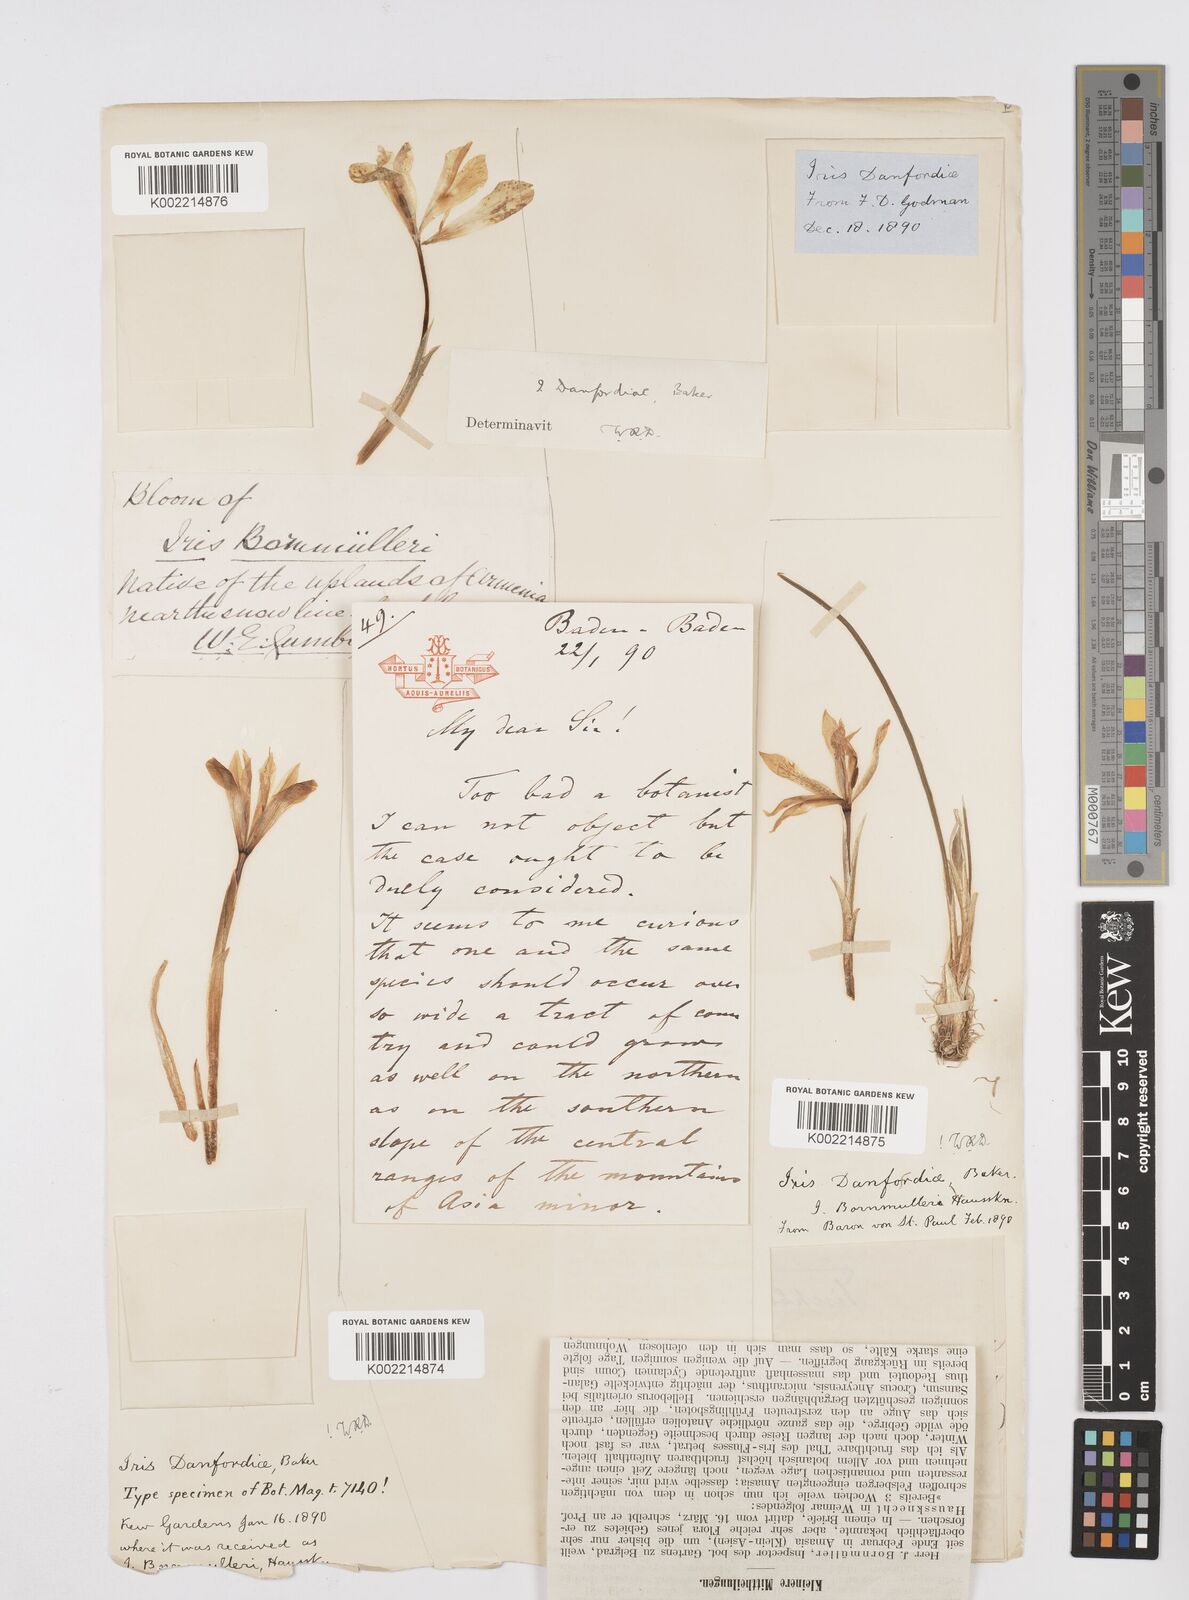 ROYAL BOTANIC GARDENS KEW
K002214876
Iris Danfordiæ
From F. D. Godman
Dec. 18. 1890
I Danfordiae, Baker
Determinavit W.R.D.
Bloom of
Iris Bornmülleri
Native of the uplands of Armenia
near the snow line.
W. E. Gumb
49.
HORTUS BOTANICUS
AQUIS-AURELIIS
Baden-Baden
22/1 90
My dear Sir!
Too bad a botanist
I can not object but
the case ought to be
duely considered.
It seems to me curious
that one and the same
species should occur over
so wide a tract of coun
try and could grow
as well on the northern
as on the southern
slope of the central
ranges of the mountains
of Asia minor.
ROYAL BOTANIC GARDENS KEW
K002214875
! W.R.D.
Iris Danfordiæ, Baker.
I. Bornmulleri Hausskn.
From Baron von St. Paul Feb. 1890
ROYAL BOTANIC GARDENS KEW
K002214874
! W.R.D.
Iris Danfordiæ, Baker
Type specimen of Bot. Mag. t. 7140!
Kew Gardens Jan 16. 1890
where it was received as
I. Bornmulleri, Hausskn
Kleinere Mittheilungen.
Herr J. Bornmüller, Inspector des bot. Gartens zu Belgrad, weilt
seit Ende Februar in Anasia (Klein-Asien), um die bisher nur sehr
oberflächlich bekannte, aber sehr reiche Flora jenes Gebietes zu er-
forschen. — In einem Briefe, datirt vom 16. März, schreibt er an Prof.
Haussknecht in Weimar folgendes:
»Bereits 3 Wochen weile ich nun schon in dem von mächtigen
schroffen Felsbergen eingeengten Anasia, dasselbe wird mir, seiner inte-
ressanten und romantischen Lage wegen, noch längere Zeit einen ange-
nehmen und vor Allem botanisch höchst fruchtbaren Aufenthalt bieten.
Als ich das fruchtbare Thal des Iris-Flusses betrat, war es fast noch
Winter, doch nach der langen Reise durch beschneite Gegenden, durch
öde wilde Gebirge, die das ganze nördliche Anatolien erfüllen, erfreute
sich das Auge an den zerstreuten Frühlingsboten, die hier an den
sonnigen geschützten Bergabhängen erschienen. Helleborus orientalis bei
Samsun, Crocus Ancyrensis, micranthus, der mächtig entwickelte Galan-
thus Redoutei und das massenhaft auftretende Cyclamen Coum sind
bereits im Rückgang begriffen. — Auf die wenigen sonnigen Tage folgte
eine starke Kälte, so dass man sich in den ofenlosen Wohnungen
inches
centimeters
Don Williams
M000767
Royal Botanic Gardens
Kew
0 1 2 3 4 5 6 7 8 9 10
copyright reserved
cm